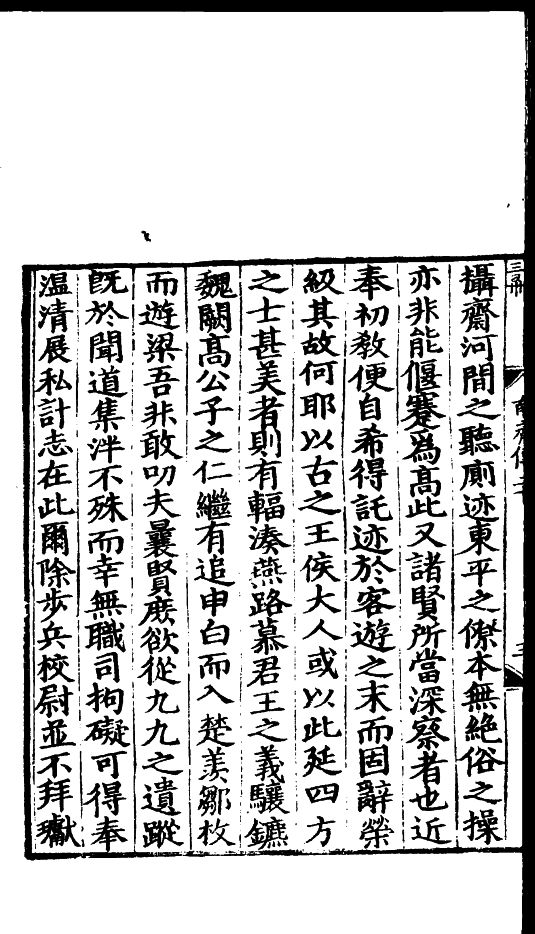 攝齋河間之聽廁迹東平之僚本無絶俗之操
亦非能偃蹇爲高此又諸賢所當深察者也近
奉初教便自希得託迹於客遊之末而固辭榮
級其故何耶以古之王侯大人或以此延四方
之士甚美者則有輻湊燕路慕君王之義驤鑣
魏闕高公子之仁繼有追申白而入楚羨鄒枚
而遊梁吾非敢叨夫曩賢庶欲從九九之遺蹤
旣於聞道集泮不殊而幸無職司拘礙可得奉
温清展私計志在此爾除步兵校尉並不拜獻